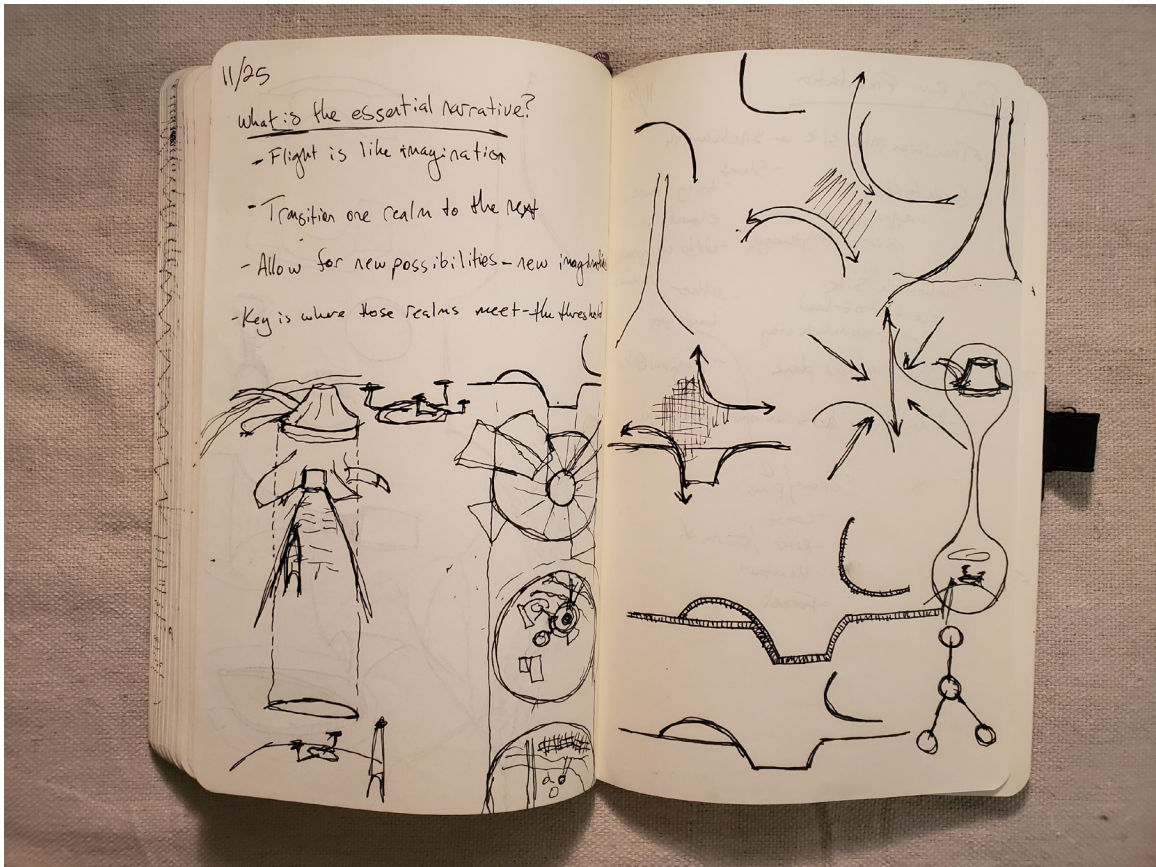 11/25
What is the essential narrative?
- Flight is like imagination
- Transition one realm to the next
- Allow for new possibilities - new imagination
- Key is where those realms meet - the threshold